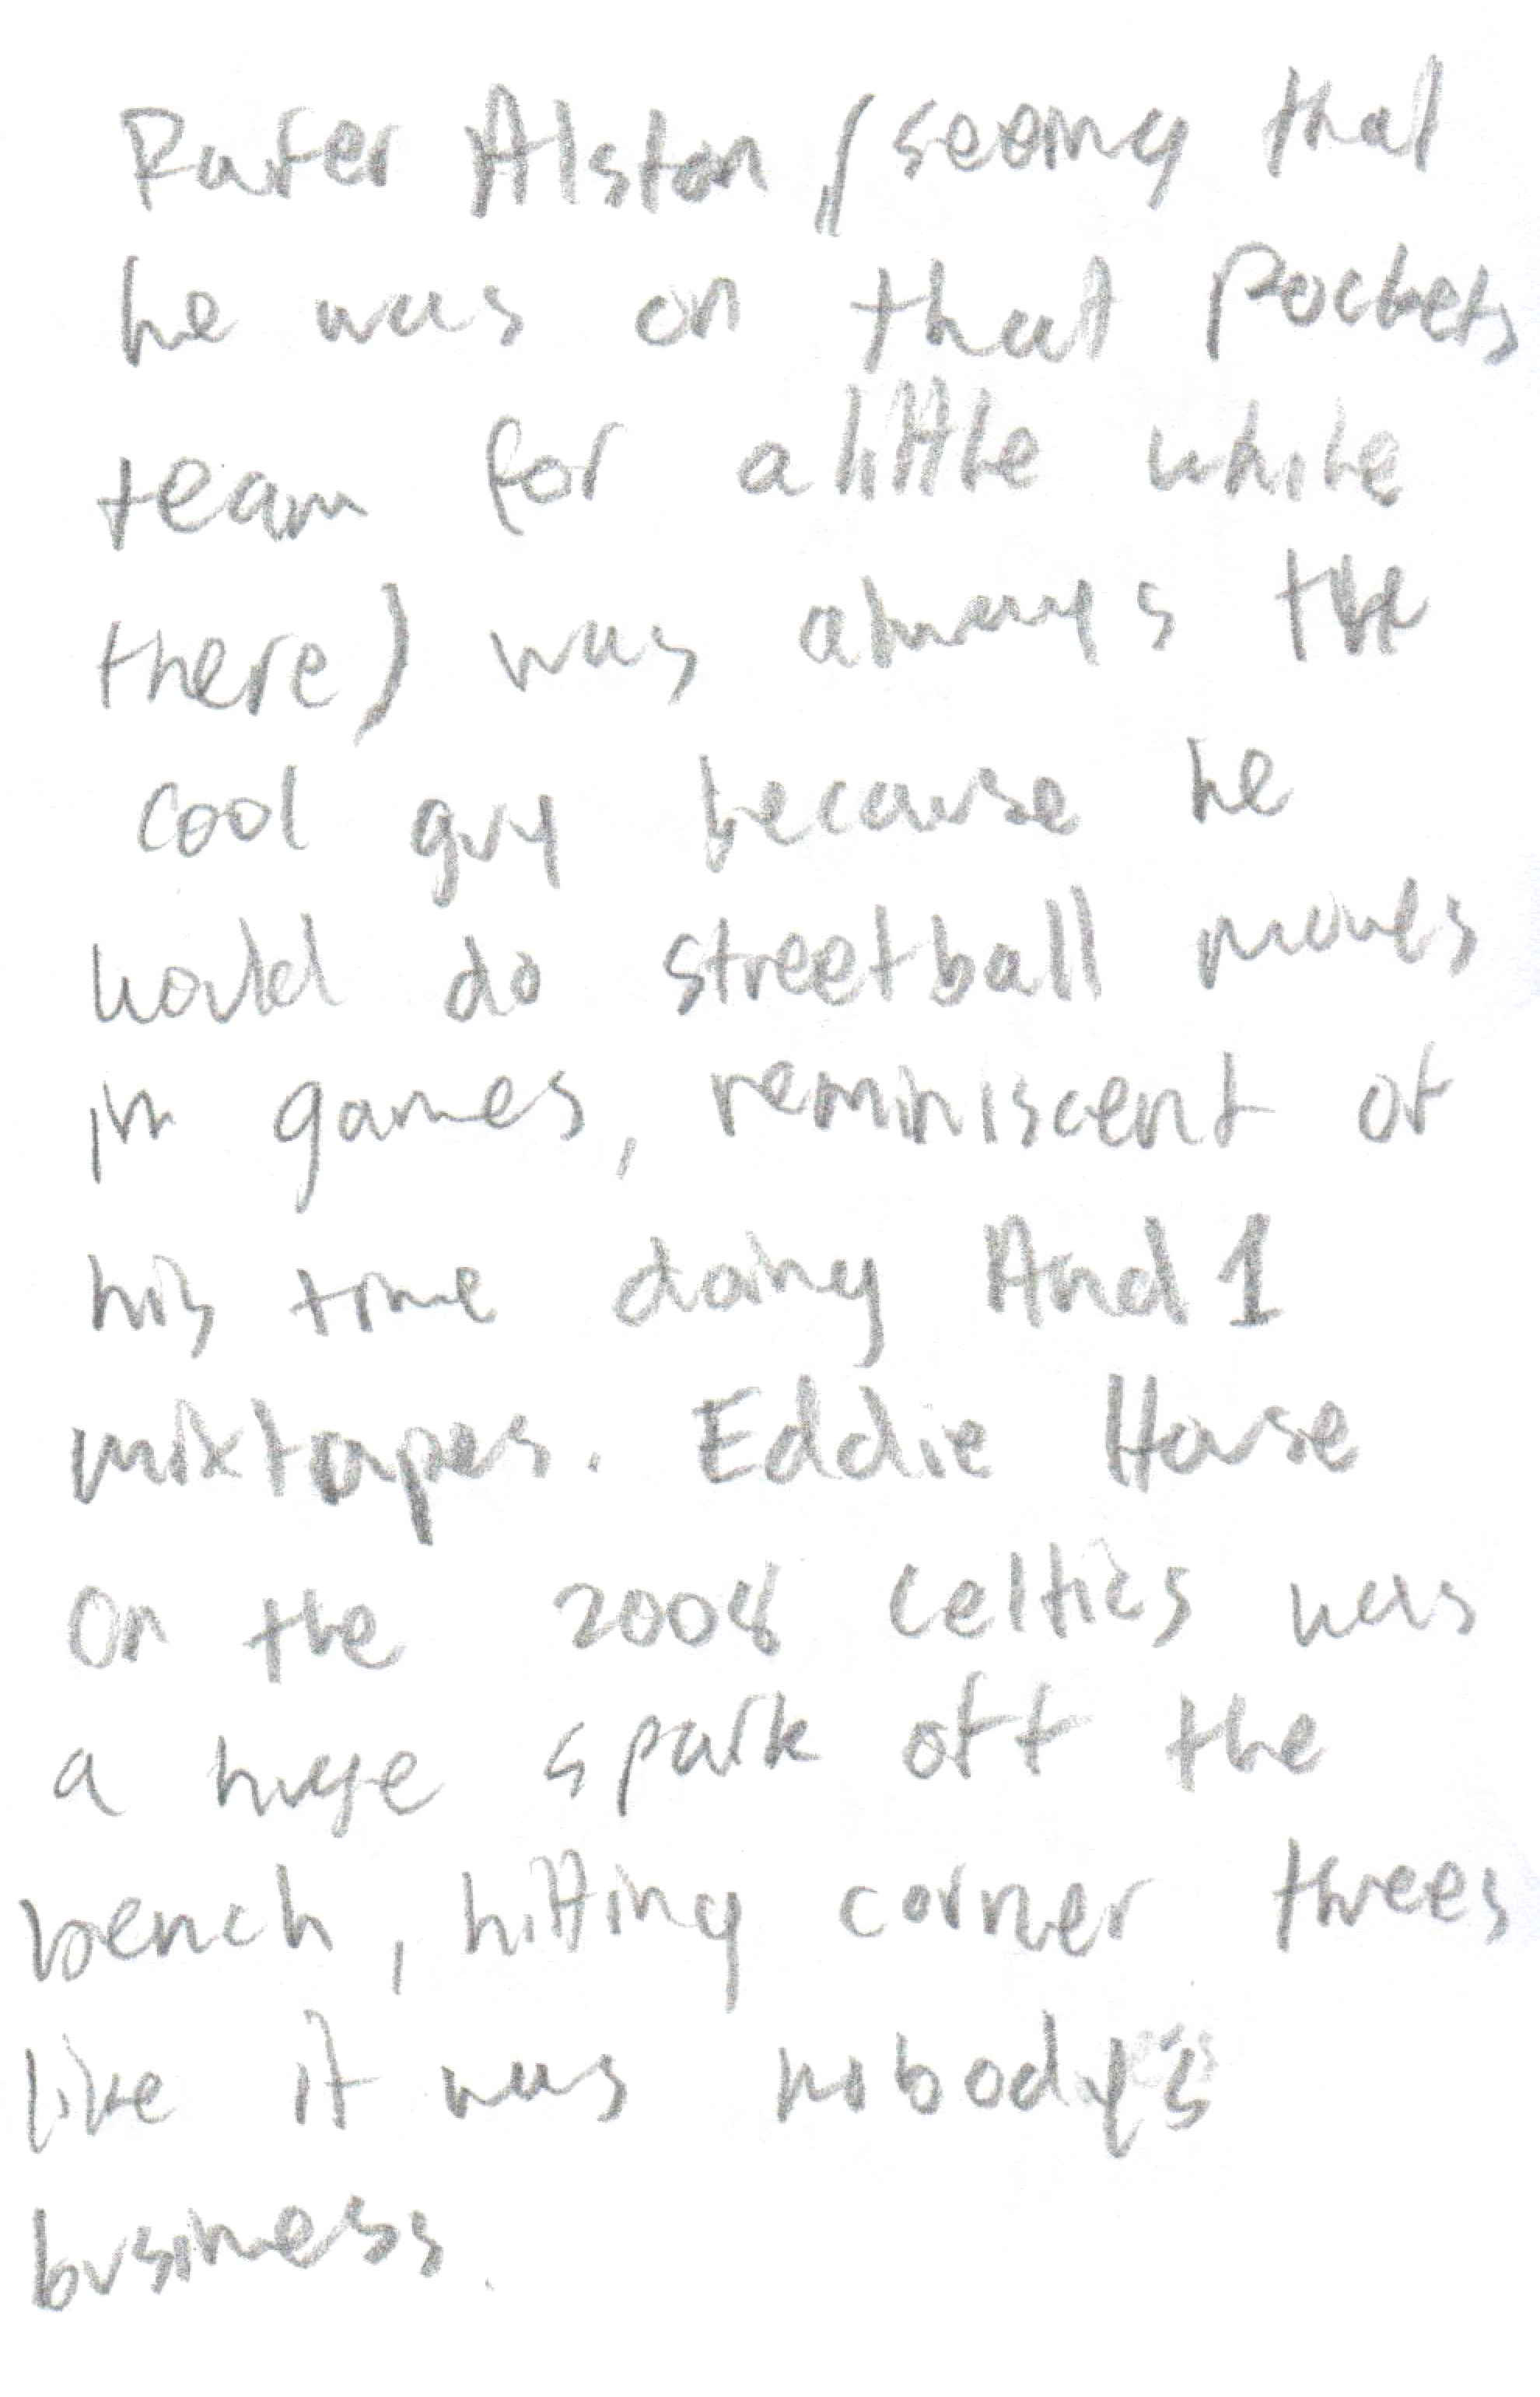 Rafer Alston (seeing that
he was on that Rockets
team for a little while
there) was always the
cool guy because he
would do streetball moves
in games, reminiscent of
his time doing And 1
mixtapes. Eddie House
on the 2008 Celtics was
a huge spark off the
bench, hitting corner threes
like it was nobody's
business.